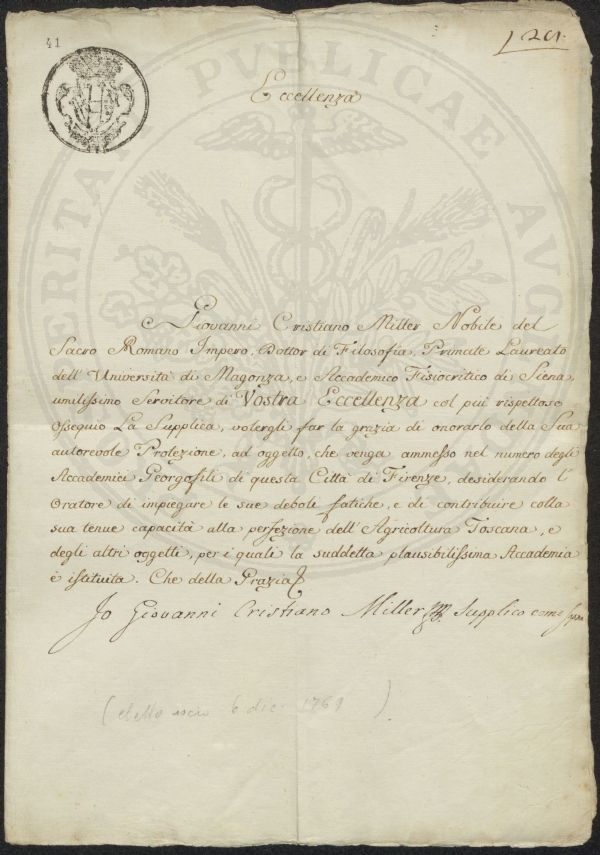 41
Eccellenza
Giovanni Cristiano Miller Nobile del
Sacro Romano Impero, Dottor di Filosofia, Primate Laureato
dell'Università di Magonza, e Accademico Fisiocritico di Siena,
umilissimo Servitore di Vostra Eccellenza col più rispettoso
ossequio La Supplica, volergli far la grazia di onorarlo della Sua
autorevole Protezione, ad oggetto, che venga ammesso nel numero degli
Accademici Georgofili di questa Città di Firenze, desiderando l'
Oratore di impiegare le sue deboli fatiche, e di contribuire colla
sua tenue capacità alla perfezione dell'Agricoltura Toscana, e
degli altri oggetti, per i quali la suddetta plausibilissima Accademia
è istituita. Che della Grazia
Io Giovanni Cristiano Miller Supplico come sopra
( 6 dic. 1769 )
PUBLICAE